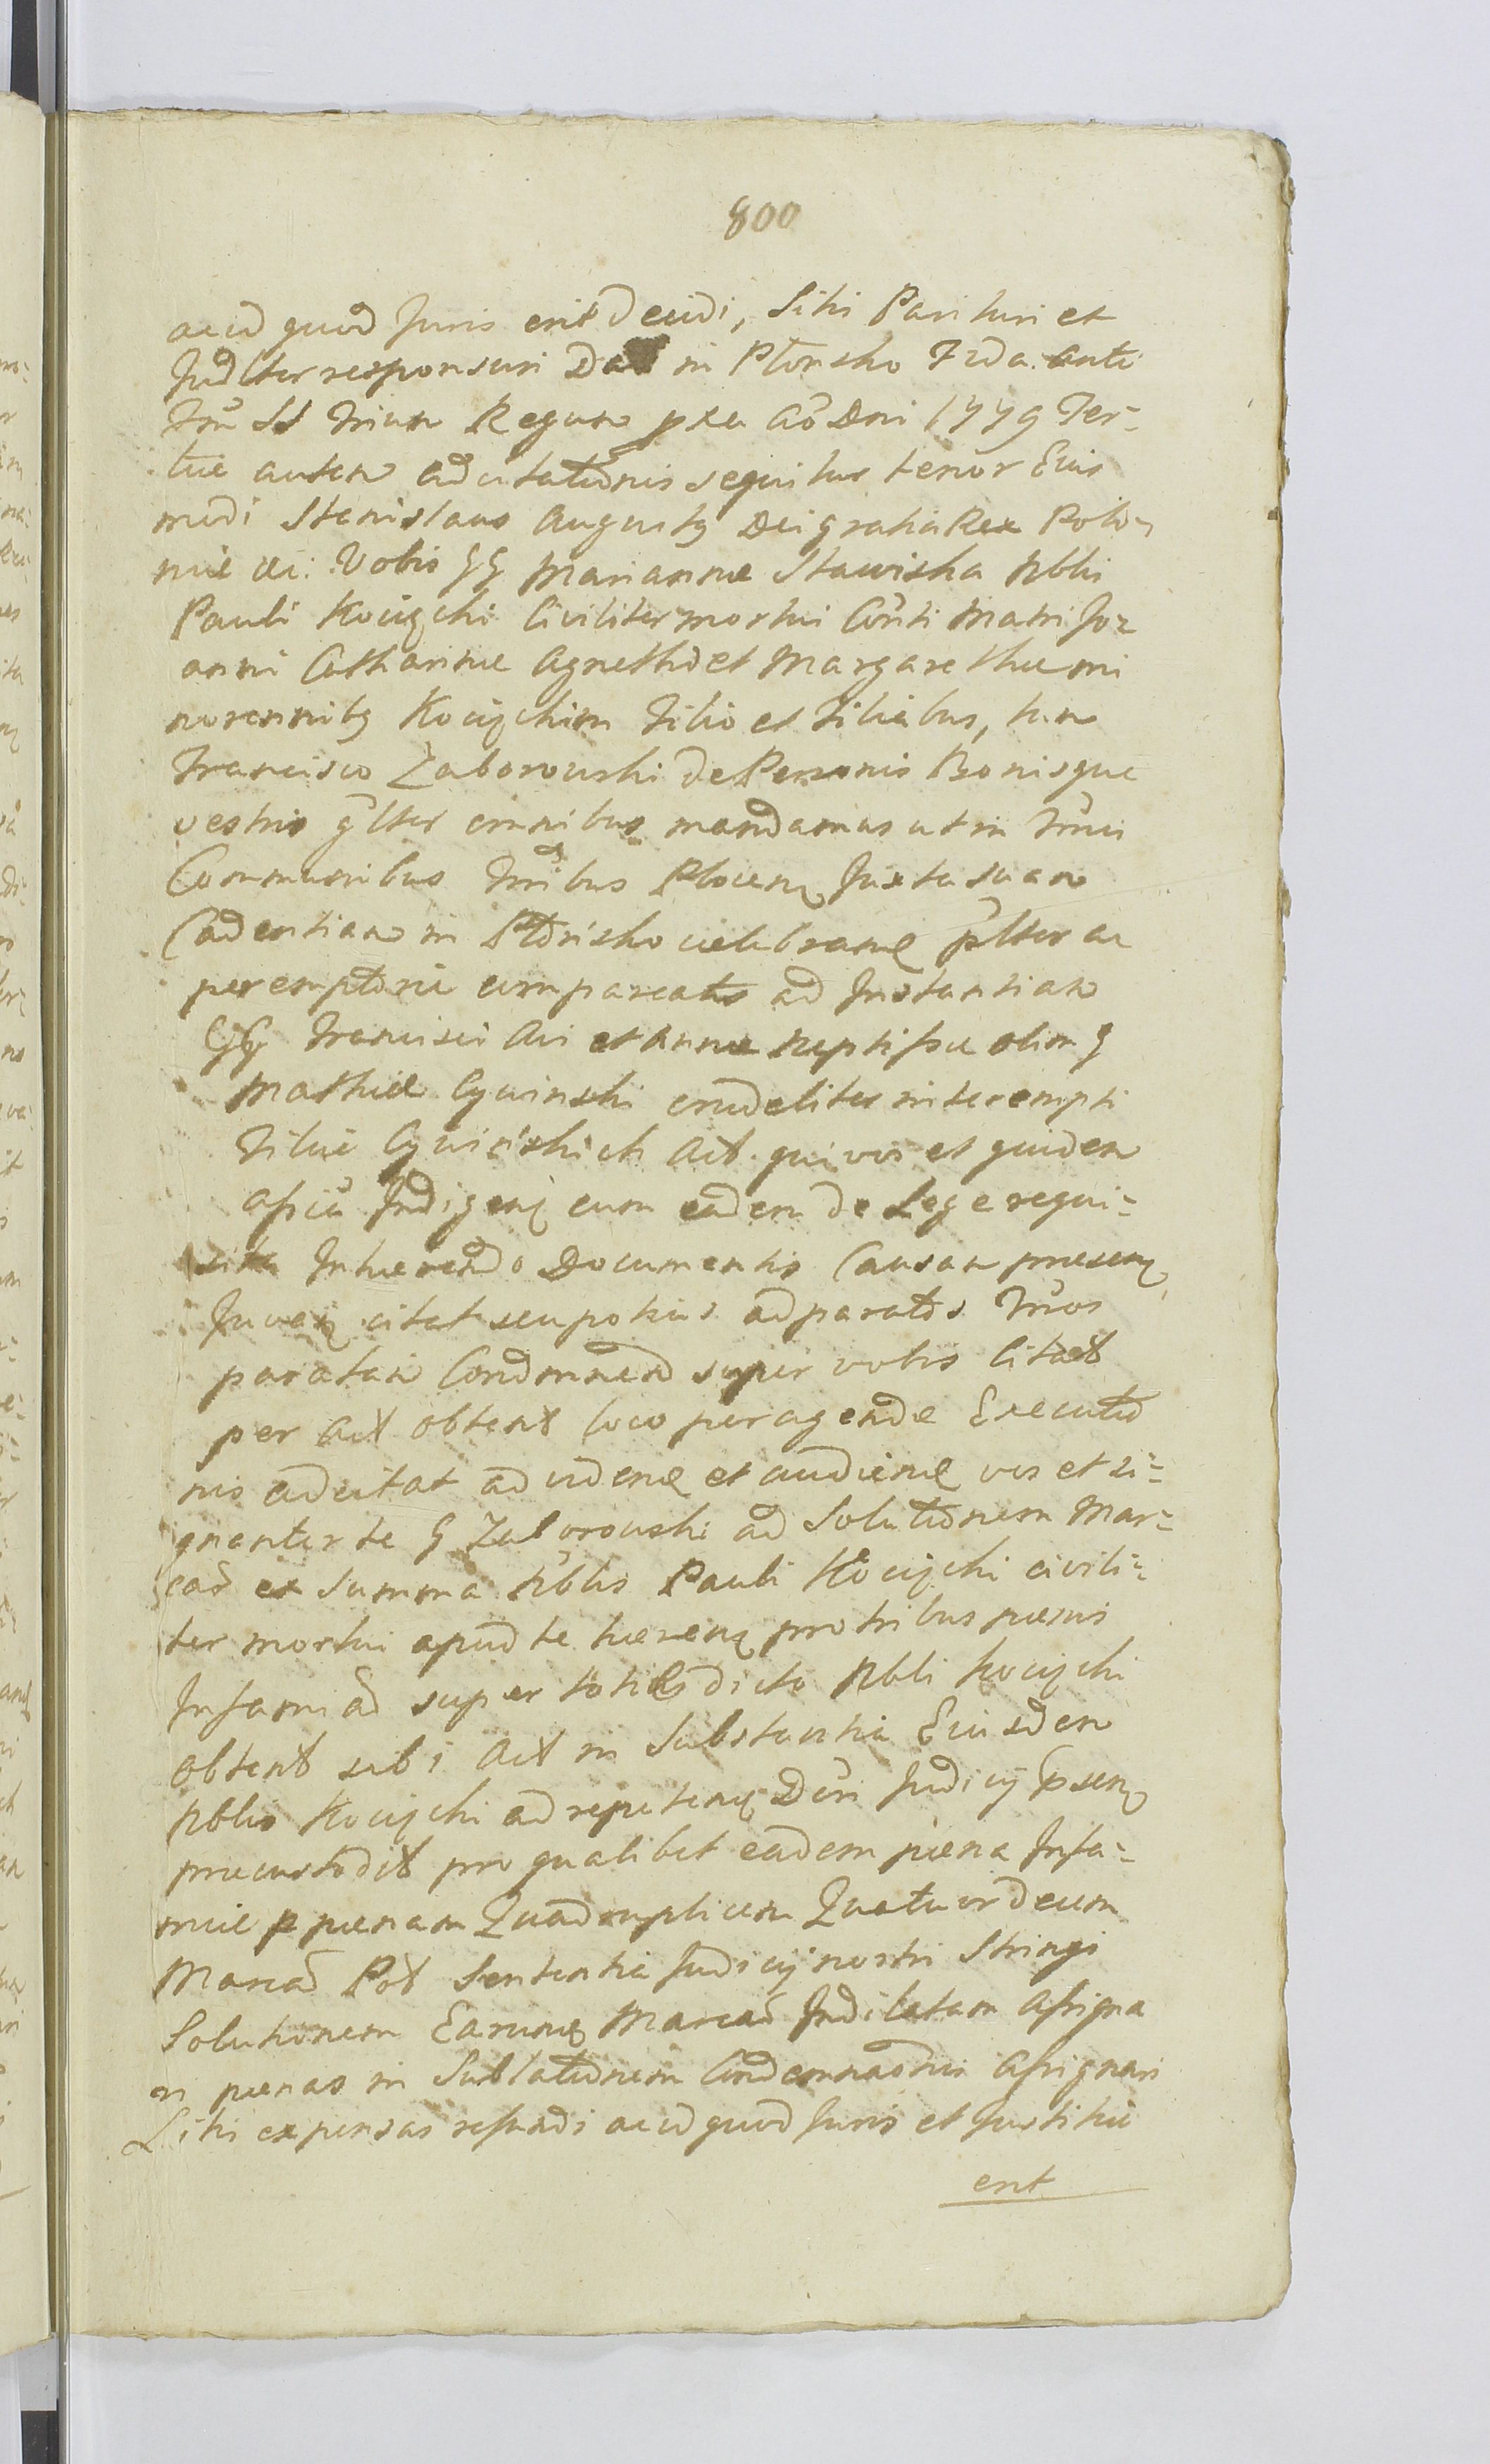 800
ac id quod Juris erit Decidi, Liti Parituri et
Judlter responsuri Dat in Płońsko Fida ante
Frũ SS Trium Regum pxa Aõ Dni 1779 Ter-
tiæ autem adcitatõnis sequitur tenor Eius
modi Stanislaus Augustq Dei gratia Rex Polo-
niæ etc: Vobis GG Mariannæ Stawiska Nbli
Pauli Kocięcki Civiliter mortui Conti Matri Jo-
anni Catharinæ Agnethæ et Margarethæ mi
norennibq Kocięckim Filio et Filiabus, tum
Francisco Zaborowski de Personis Bonisque
vestris glter omnibus mandamus ut in Trmis
Communibus Trribus Plocen Juxta suam
Cadentiam in Płońsko celebrand plter ac
peremptorie compareatis ad Instantiam
GG Francisci Avi et Annæ Neptissæ olim G
Mathiæ Cywinski crudeliter interempti
Filiæ Cywińskich Act. qui vos et quidem
Assũ Indigen cum eadem de Lege requi-
sita Inhærendo Documentis Causam præsen
Juven citat seu potius ad paratos Trmos
paratam Condmnend super vobis Citat
per Act obtent loco peragendæ Executio
nis adcitat ad videnđ et audienđ vos et si-
gnanter te G Zaborowski ad Solutionem Mar-
car ex Summa Nblis Pauli Kocięcki civili-
ter mortui apud te hæren pro tribus pænis
Infamiæ super toties dicto Nbli Kocięcki
obtent sibi Act in Substantia Eiusdem
Nblis Kocięcki ad repeten Dcri Judicij psen
præcustodit pro qualibet eadem pæna Infa-
miæ p pænam Quadruplicem Quatuordecim
Marcar Pol Sententia Judicij nostri Stringi
Solutionem Earunđ Marcar Indilatam Assigna
ri pænas in Sublationem Condemnaonis Assignari
Litis expensas refundi ac id quod Juris et Justitiæ
erit